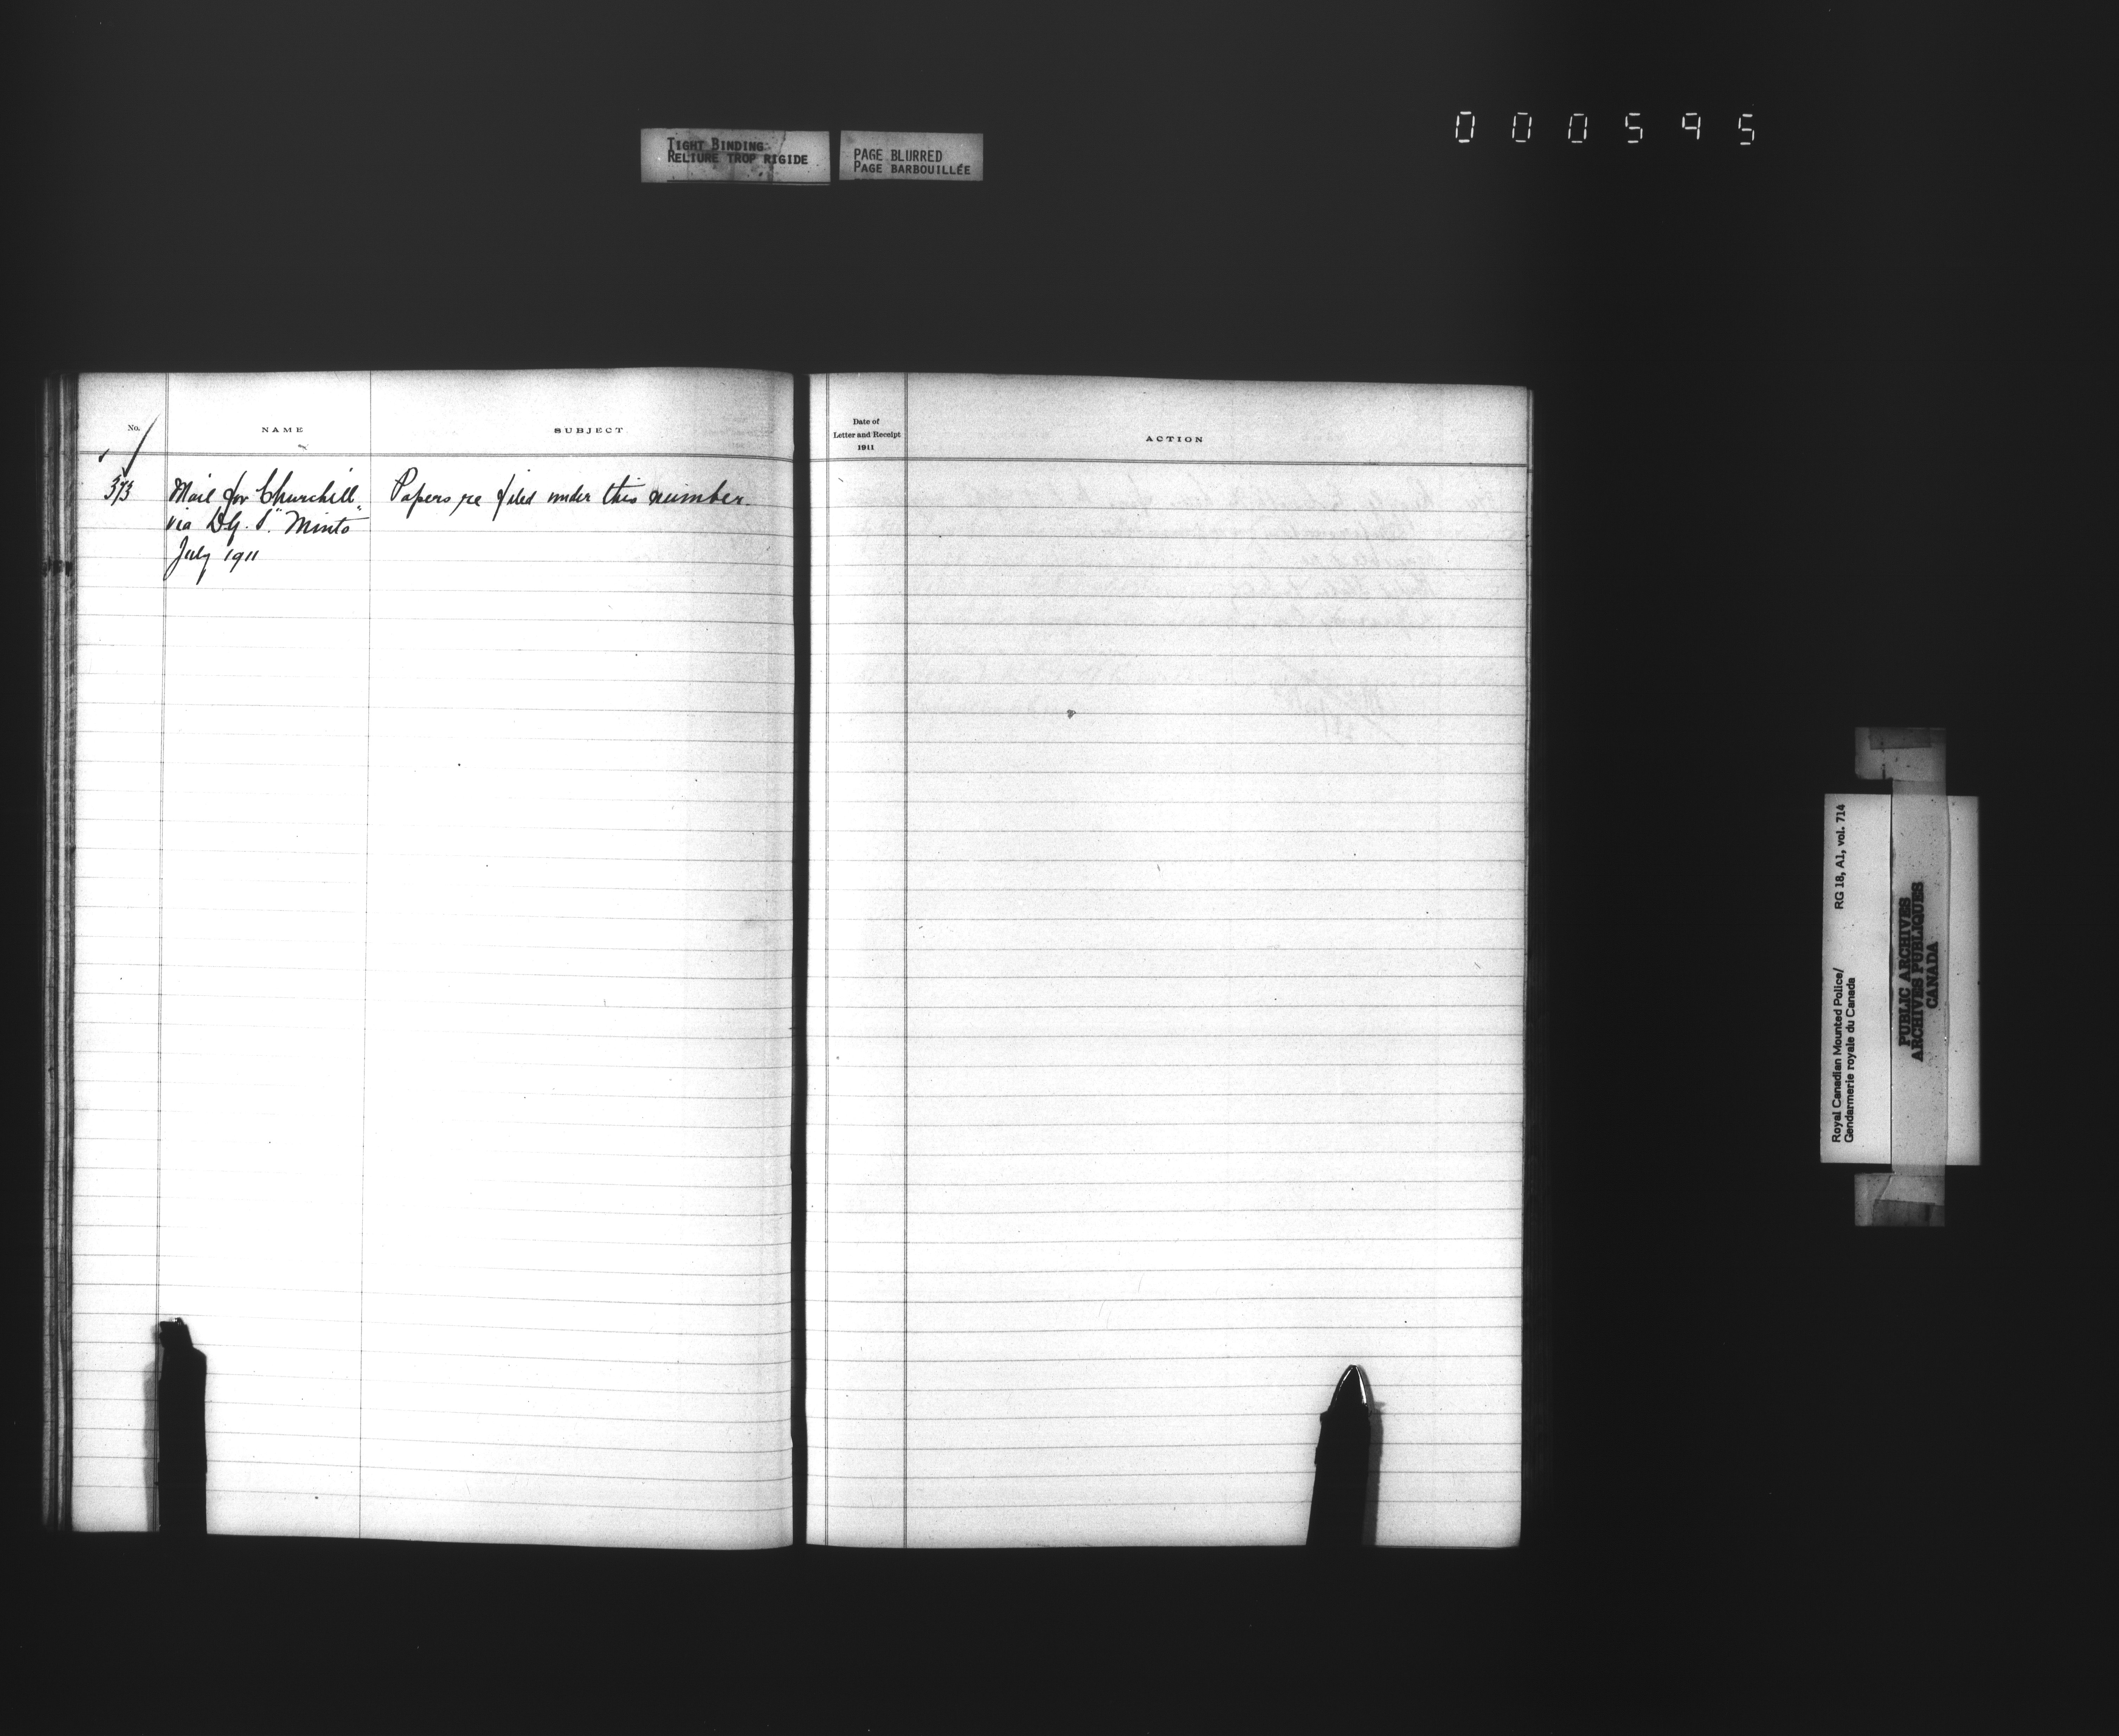 TIGHT BINDING
RELIURE TROP RIGIDE
PAGE BLURRED
PAGE BARBOUILLÉE
000595
No.
NAME
SUBJECT
Date of
Letter and Receipt
1911
ACTION
373 Mail for Churchill Papers re filed under this number.
via "Minto"
July 1911
Royal Canadian Mounted Police/ RG 18, A1, vol. 714
Gendarmerie royale du Canada
PUBLIC ARCHIVES
ARCHIVES PUBLIQUES
CANADA